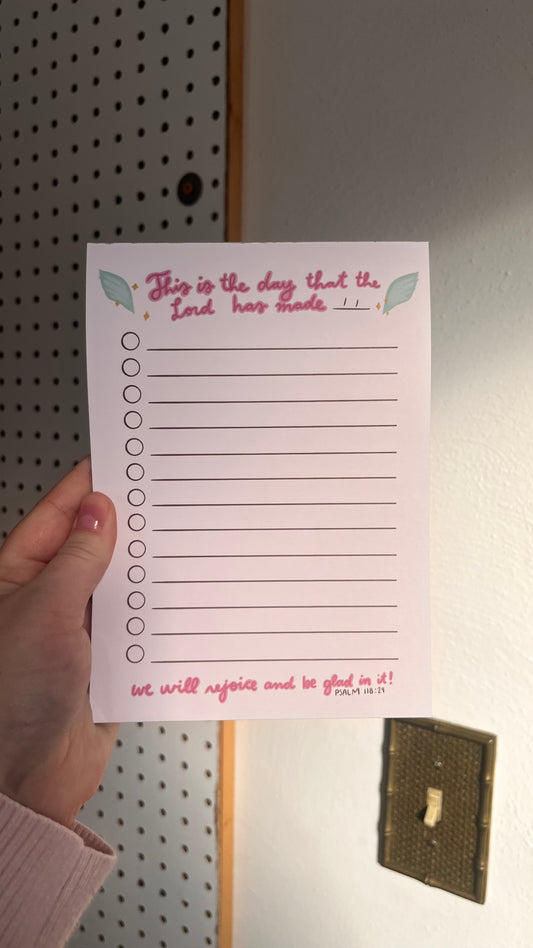 This is the day that the
Lord has made _'_'_
we will rejoice and be glad in it!
PSALM 118:24